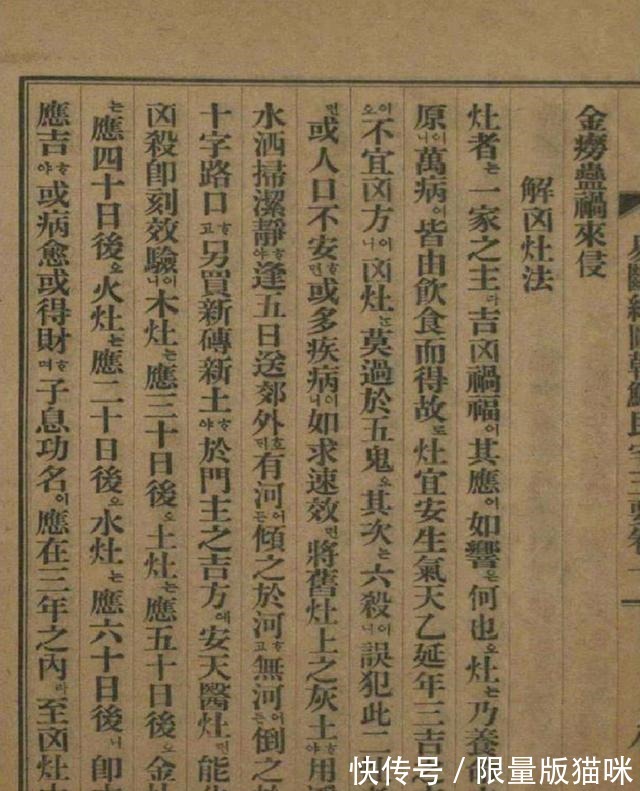 金癆蠱禍來侵
解凶灶法
灶者는一家之主라吉凶禍福이其應이如響은何也오灶는乃養
原이니萬病이皆由飲食而得故로灶宜安生氣天乙延年三吉之
이오不宜凶方이니凶灶는莫過於五鬼오其次는六殺이니誤犯此二
면或人口不安하면或多疾病이니如求速效면將舊灶上之灰土하야用
水洒掃潔靜하야逢五日送郊外하되有河어든傾之於河하고無河어든倒之
十字路口하고另買新磚新土하야於門主之吉方에安天醫灶면能
凶殺卽刻效驗이니木灶는應三十日後오土灶는應五十日後오金
는應四十日後오火灶는應二十日後오水灶는應六十日後니卽
應吉하야或病愈或得財하며子息功名이應在三年之內라至凶灶
快传号/限量版猫咪